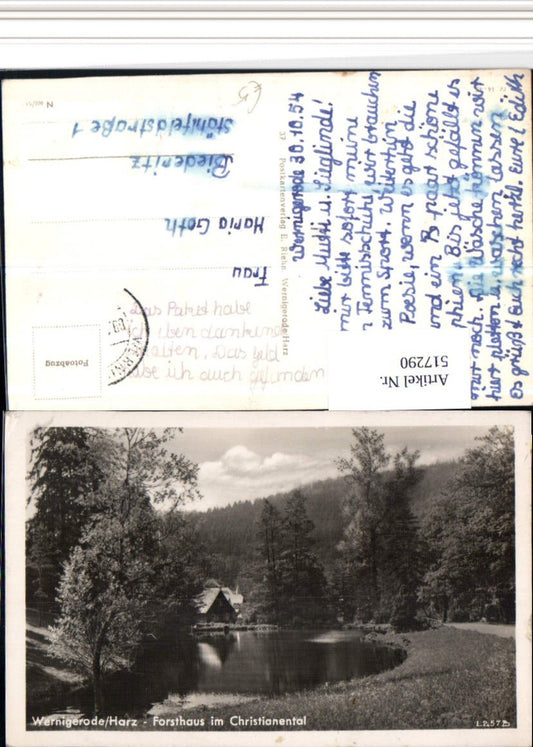 Wernigerode 30.10.54
Liebe Mutti u. Sieglinde!
mir bitte sofort meine
Tennisschuhe, wir brauchen
zum Sport. Weiterhin
Poesie, wenn es geht die
und ein paar schöne
Bis jetzt gefällt es
mir noch. Die Wäsche können wir
hier plätten u. waschen lassen
es grüßt Euch recht herzl. Eure Edith
37 Postkartenverlag E. Riehn, Wernigerode/Harz
Frau
Maria Goth
Biederitz
Stühfeldstraße 1
Das Paket habe
ich eben dankend
erhalten. Das Geld
habe ich auch gefunden
Fotoabzug
Artikel Nr.
517290
Wernigerode/Harz - Forsthaus im Christianental